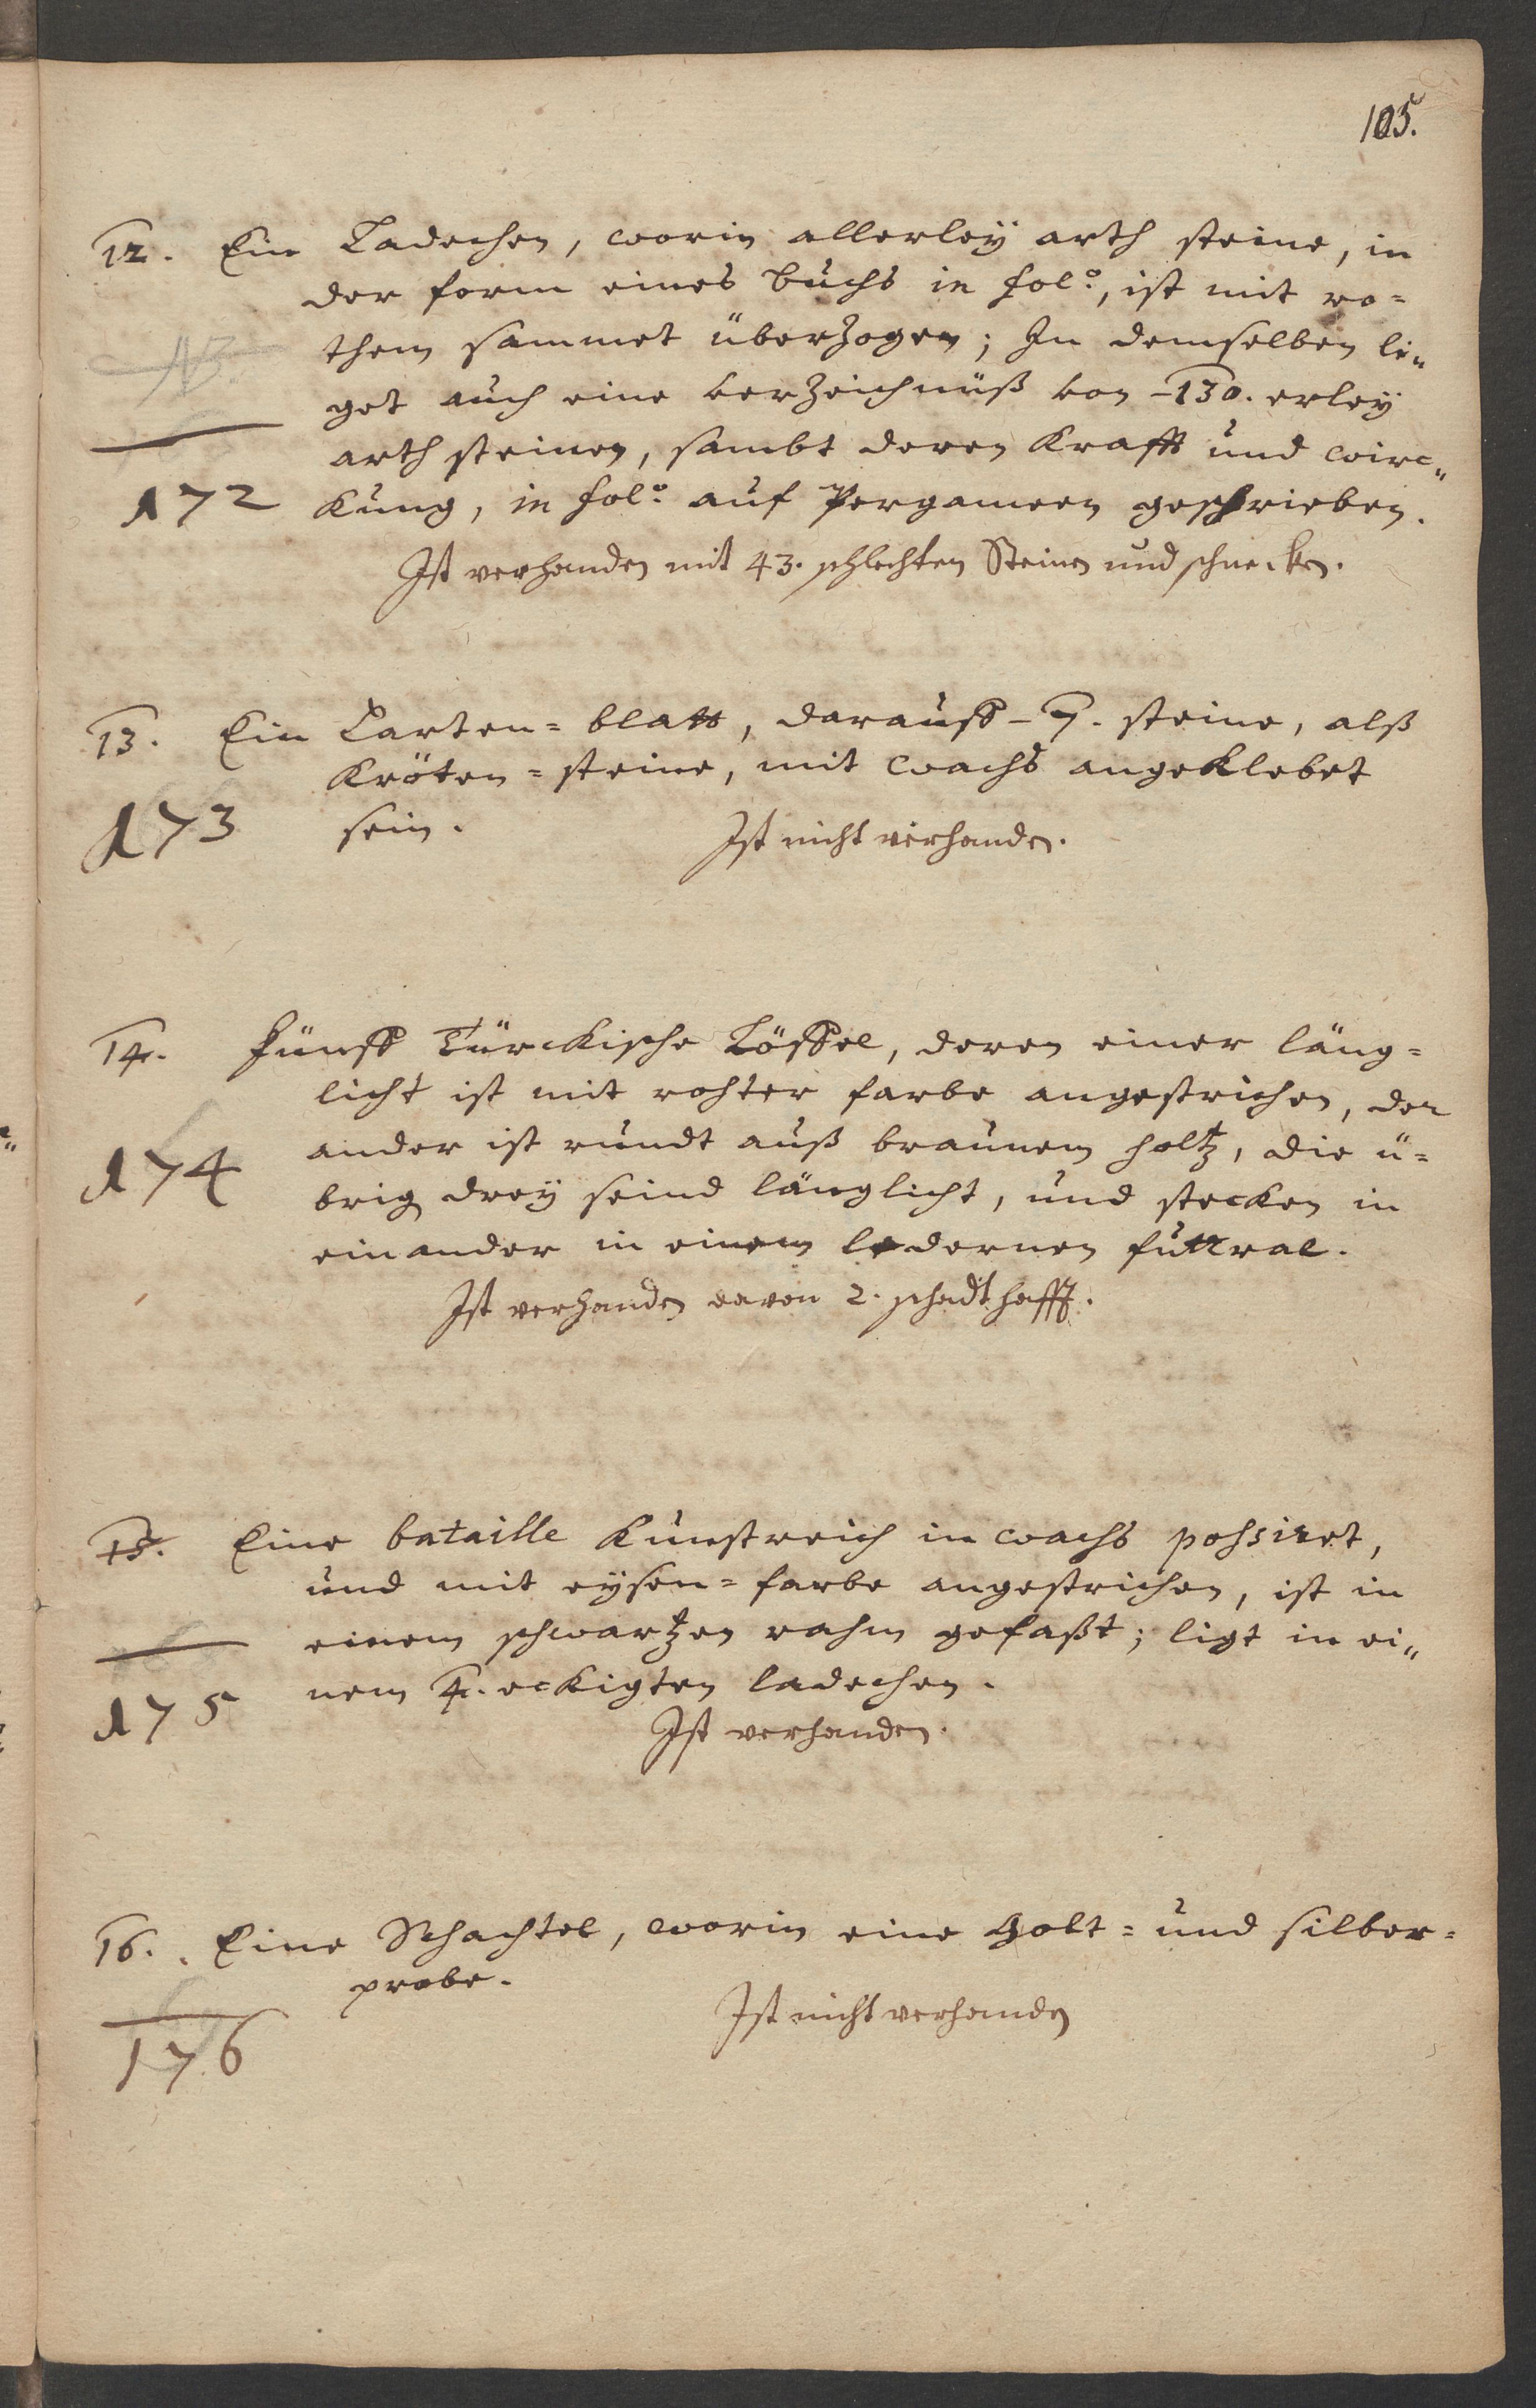 105.
12. Ein Ladechen, worin allerley arth steine, in
der form eines buchs in fol:°, ist mit ro=
them sammet überzogen; In demselben li„
get auch eine verzeichnüß von -130. erley
arth steinen, sambt deren Krafft und wirc„
172 kung, in fol:° auf Pergameen geschrieben.
Ist verhanden mit 43. schlechten Steinen und schnecken.
13. Ein Carten=blatt, darauff -7. steine, alß
Kröten=steine, mit wachs angeklebet
173 sein. Ist nicht verhanden.
14. Fünff Türckische Löffel, deren einer läng=
licht ist mit rohter farbe angestrichen, der
174 ander ist rundt auß braunem holtz, die ü=
brig drey seind länglicht, und stecken in
einander in einem ledernen futtral.
Ist verhanden davon 2. schadthafft.
15. Eine bataille kunstreich in wachs pohsiret,
und mit eysen=farbe angestrichen, ist in
einem schwartzen rahm gefaßt; ligt in ei„
175 nem 4. eckigten ladechen.
Ist verhanden.
16. Eine Schachtel, worin eine Golt= und silber=
probe.
176 Ist nicht verhanden